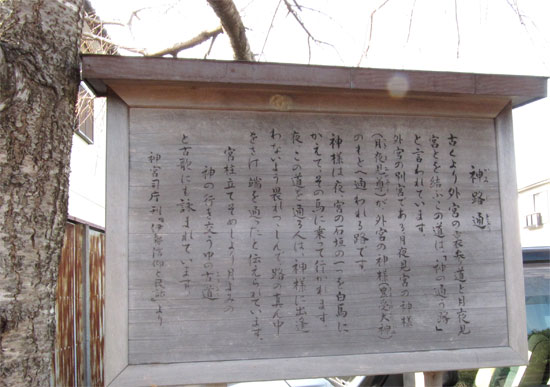 神路通
古くより外宮の北の長い道と月夜見
宮とを結ぶこの道は、「神の通う路」
と言われています。
外宮の別宮である月夜見宮の神様
(月夜見尊)が外宮の神様(豊受大神)
のもとへ通われる路です。
神様は夜、宮の石垣の一つを白馬に
かえてその馬に乗って行かれます。
夜、この道を通る人は、神様に出逢
わないよう畏れつつしんで路の真ん中
をさけ、端を通ったと伝えられています。
宮柱立てそめしより月よみの
神の行き交う中の古道
と古歌にも詠まれています。
神宮司庁刊「伊勢信仰と民俗」より